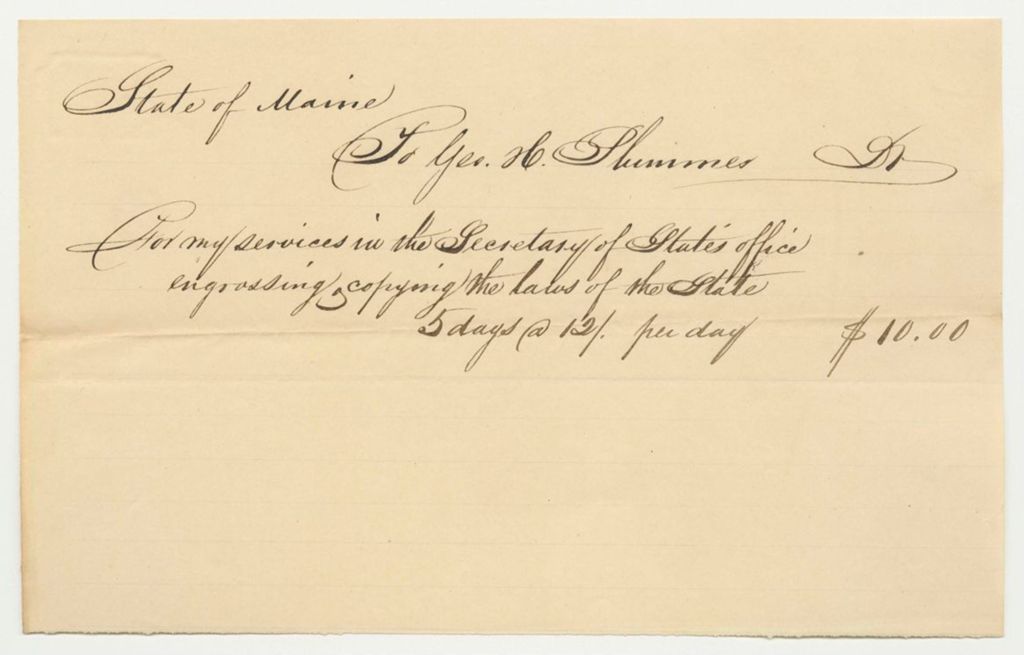 State of Maine
To Geo. H. Plummer Dr
For my services in the Secretary of State's office
engrossing & copying the laws of the State
5 days @ 12/. per day $10.00